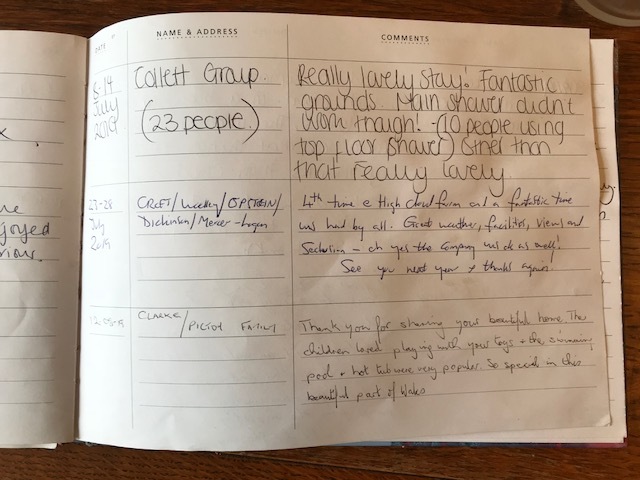 DATE NAME & ADDRESS COMMENTS
8-14 Collett Group. Really lovely stay! Fantastic
July grounds. Main shower didn't
2019 (23 people.) work though! - (10 people using
top floor shower) Other than
that really lovely
27-28 CROFT/Woolley/EPSTEIN/ 4th time @ High cloud farm and a fantastic time
July Dickinson/Mercer-Logan was had by all. Great weather, facilities, views and
2019 Seclusion - oh yes the Company was ok as well!
See you next year + thanks again
CLARKE/PICTON FAMILY Thank you for sharing your beautiful home. The
children loved playing with your toys + the swimming
pool + hot tub were very popular. So special in this
beautiful part of Wales
x.
joyed